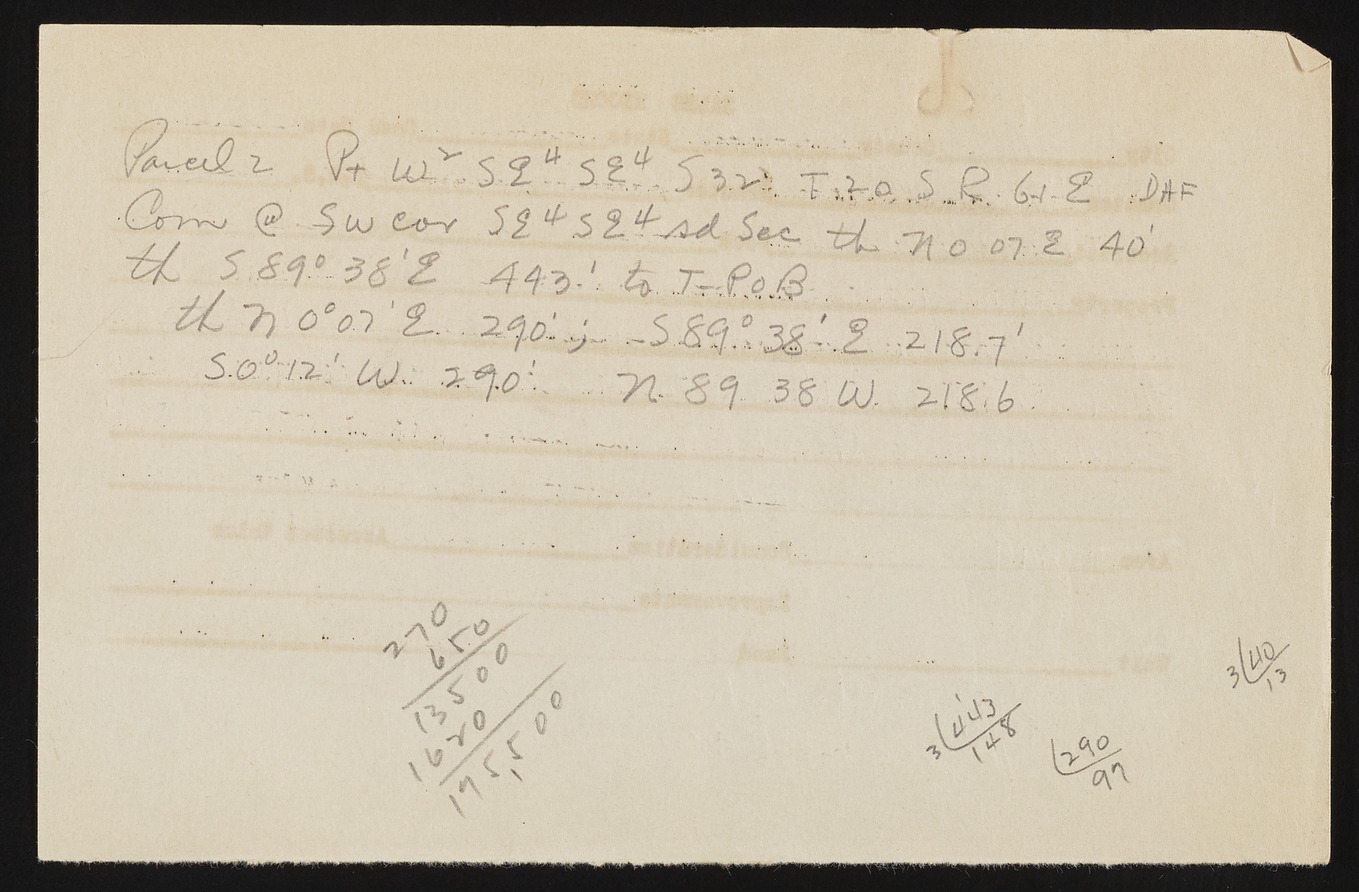 Parcel 2 Pt W² SE⁴ SE⁴ S32 T.20 S R. 61 E DAF
Com @ SW cor SE⁴ SE⁴ sd Sec th N 0 07 E 40'
th S 89° 38' E 443.' to T-PoB
th N 0° 07' E. 290'; S 89° 38' E 218.7'
S.0° 12' W. 290' N. 89 38 W. 218.6
270
650
13500
1620
175,500
3 443
148
290
97
3 40
13